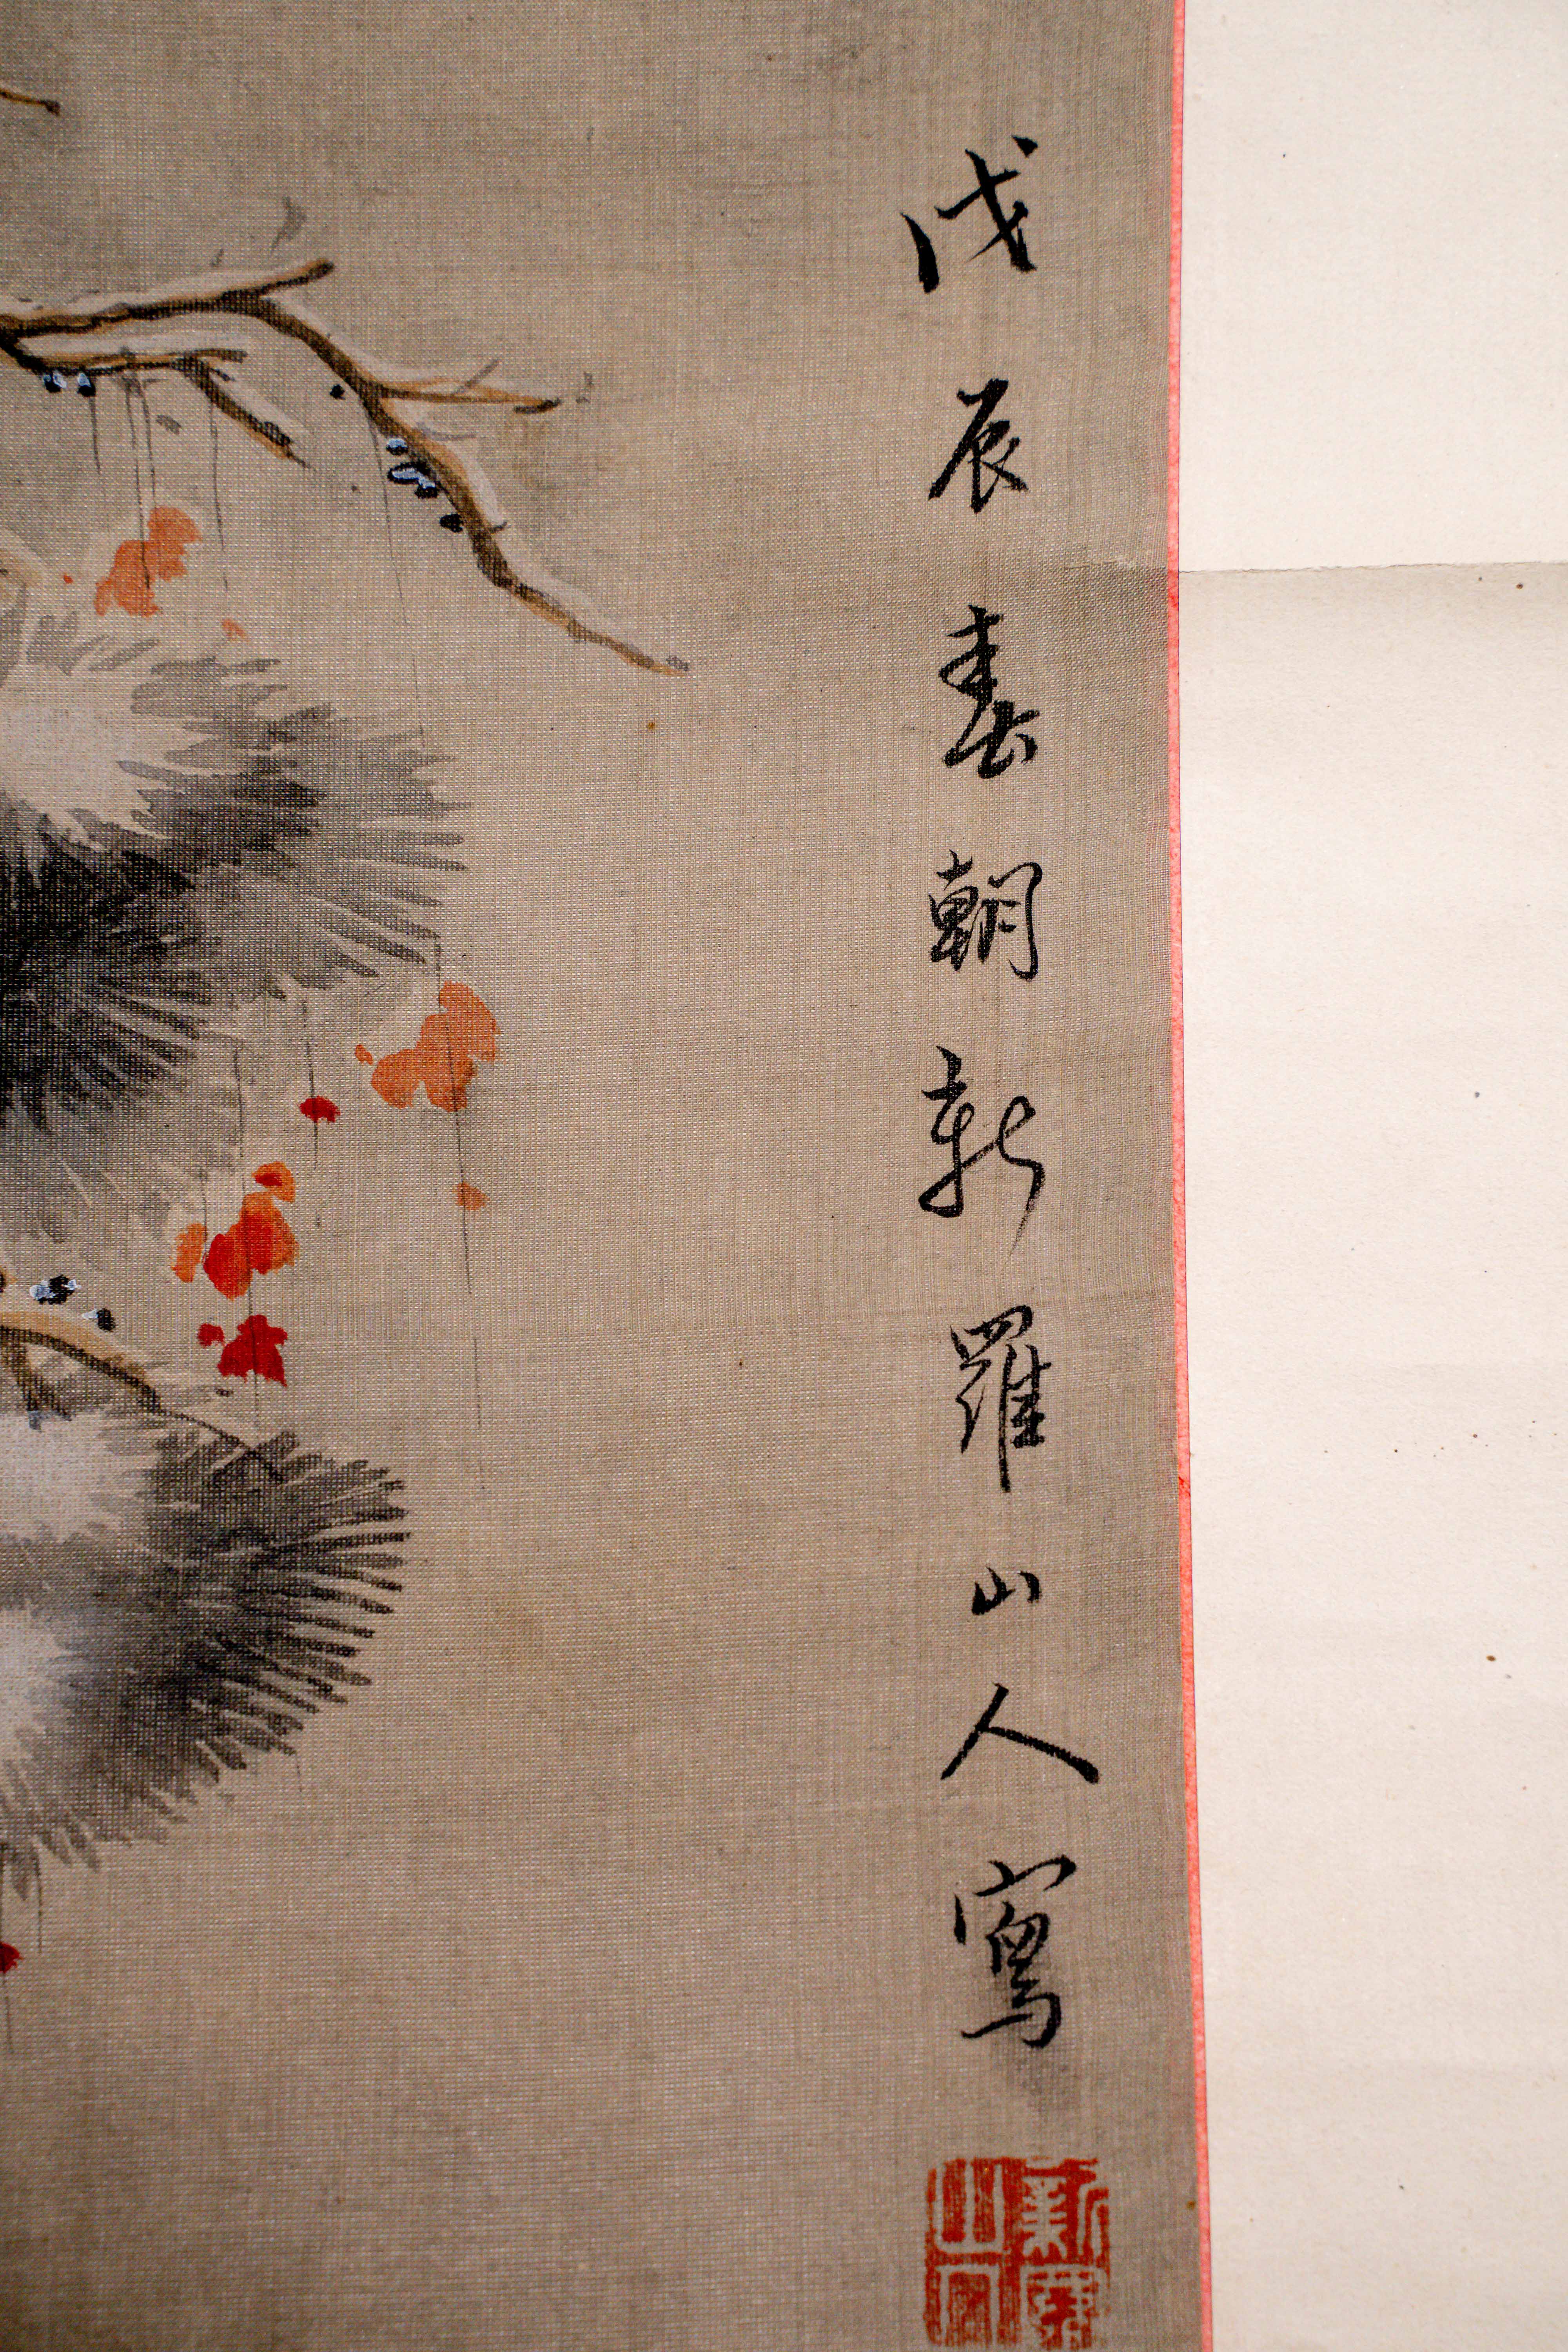 戊辰春朝新羅山人寫
新羅山人